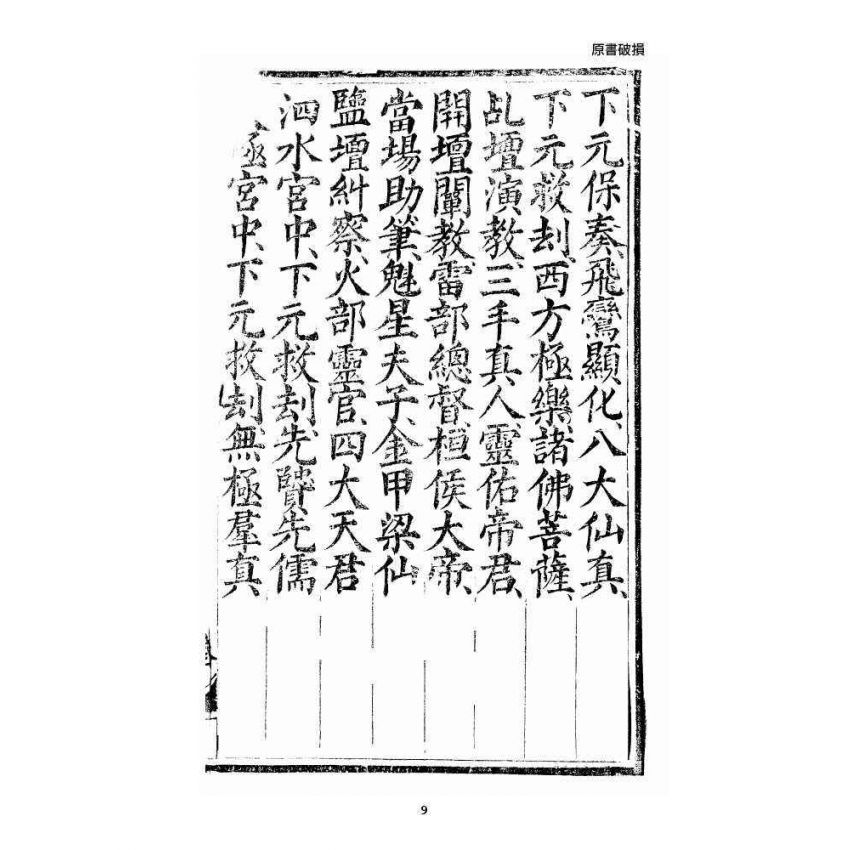 原書破損
下元保奏、飛鸞顯化、八大仙真、
下元救刦、西方極樂、諸佛菩薩、
乩壇演教、三手真人、靈佑帝君、
開壇闡教、雷部總督、桓侯大帝、
當場助筆、魁星夫子、金甲梁仙
鹽壇糾察、火部靈官、四大天君
泗水宮中、下元救刦、先賢先儒
極宮中、下元救刦、無極羣真、
9